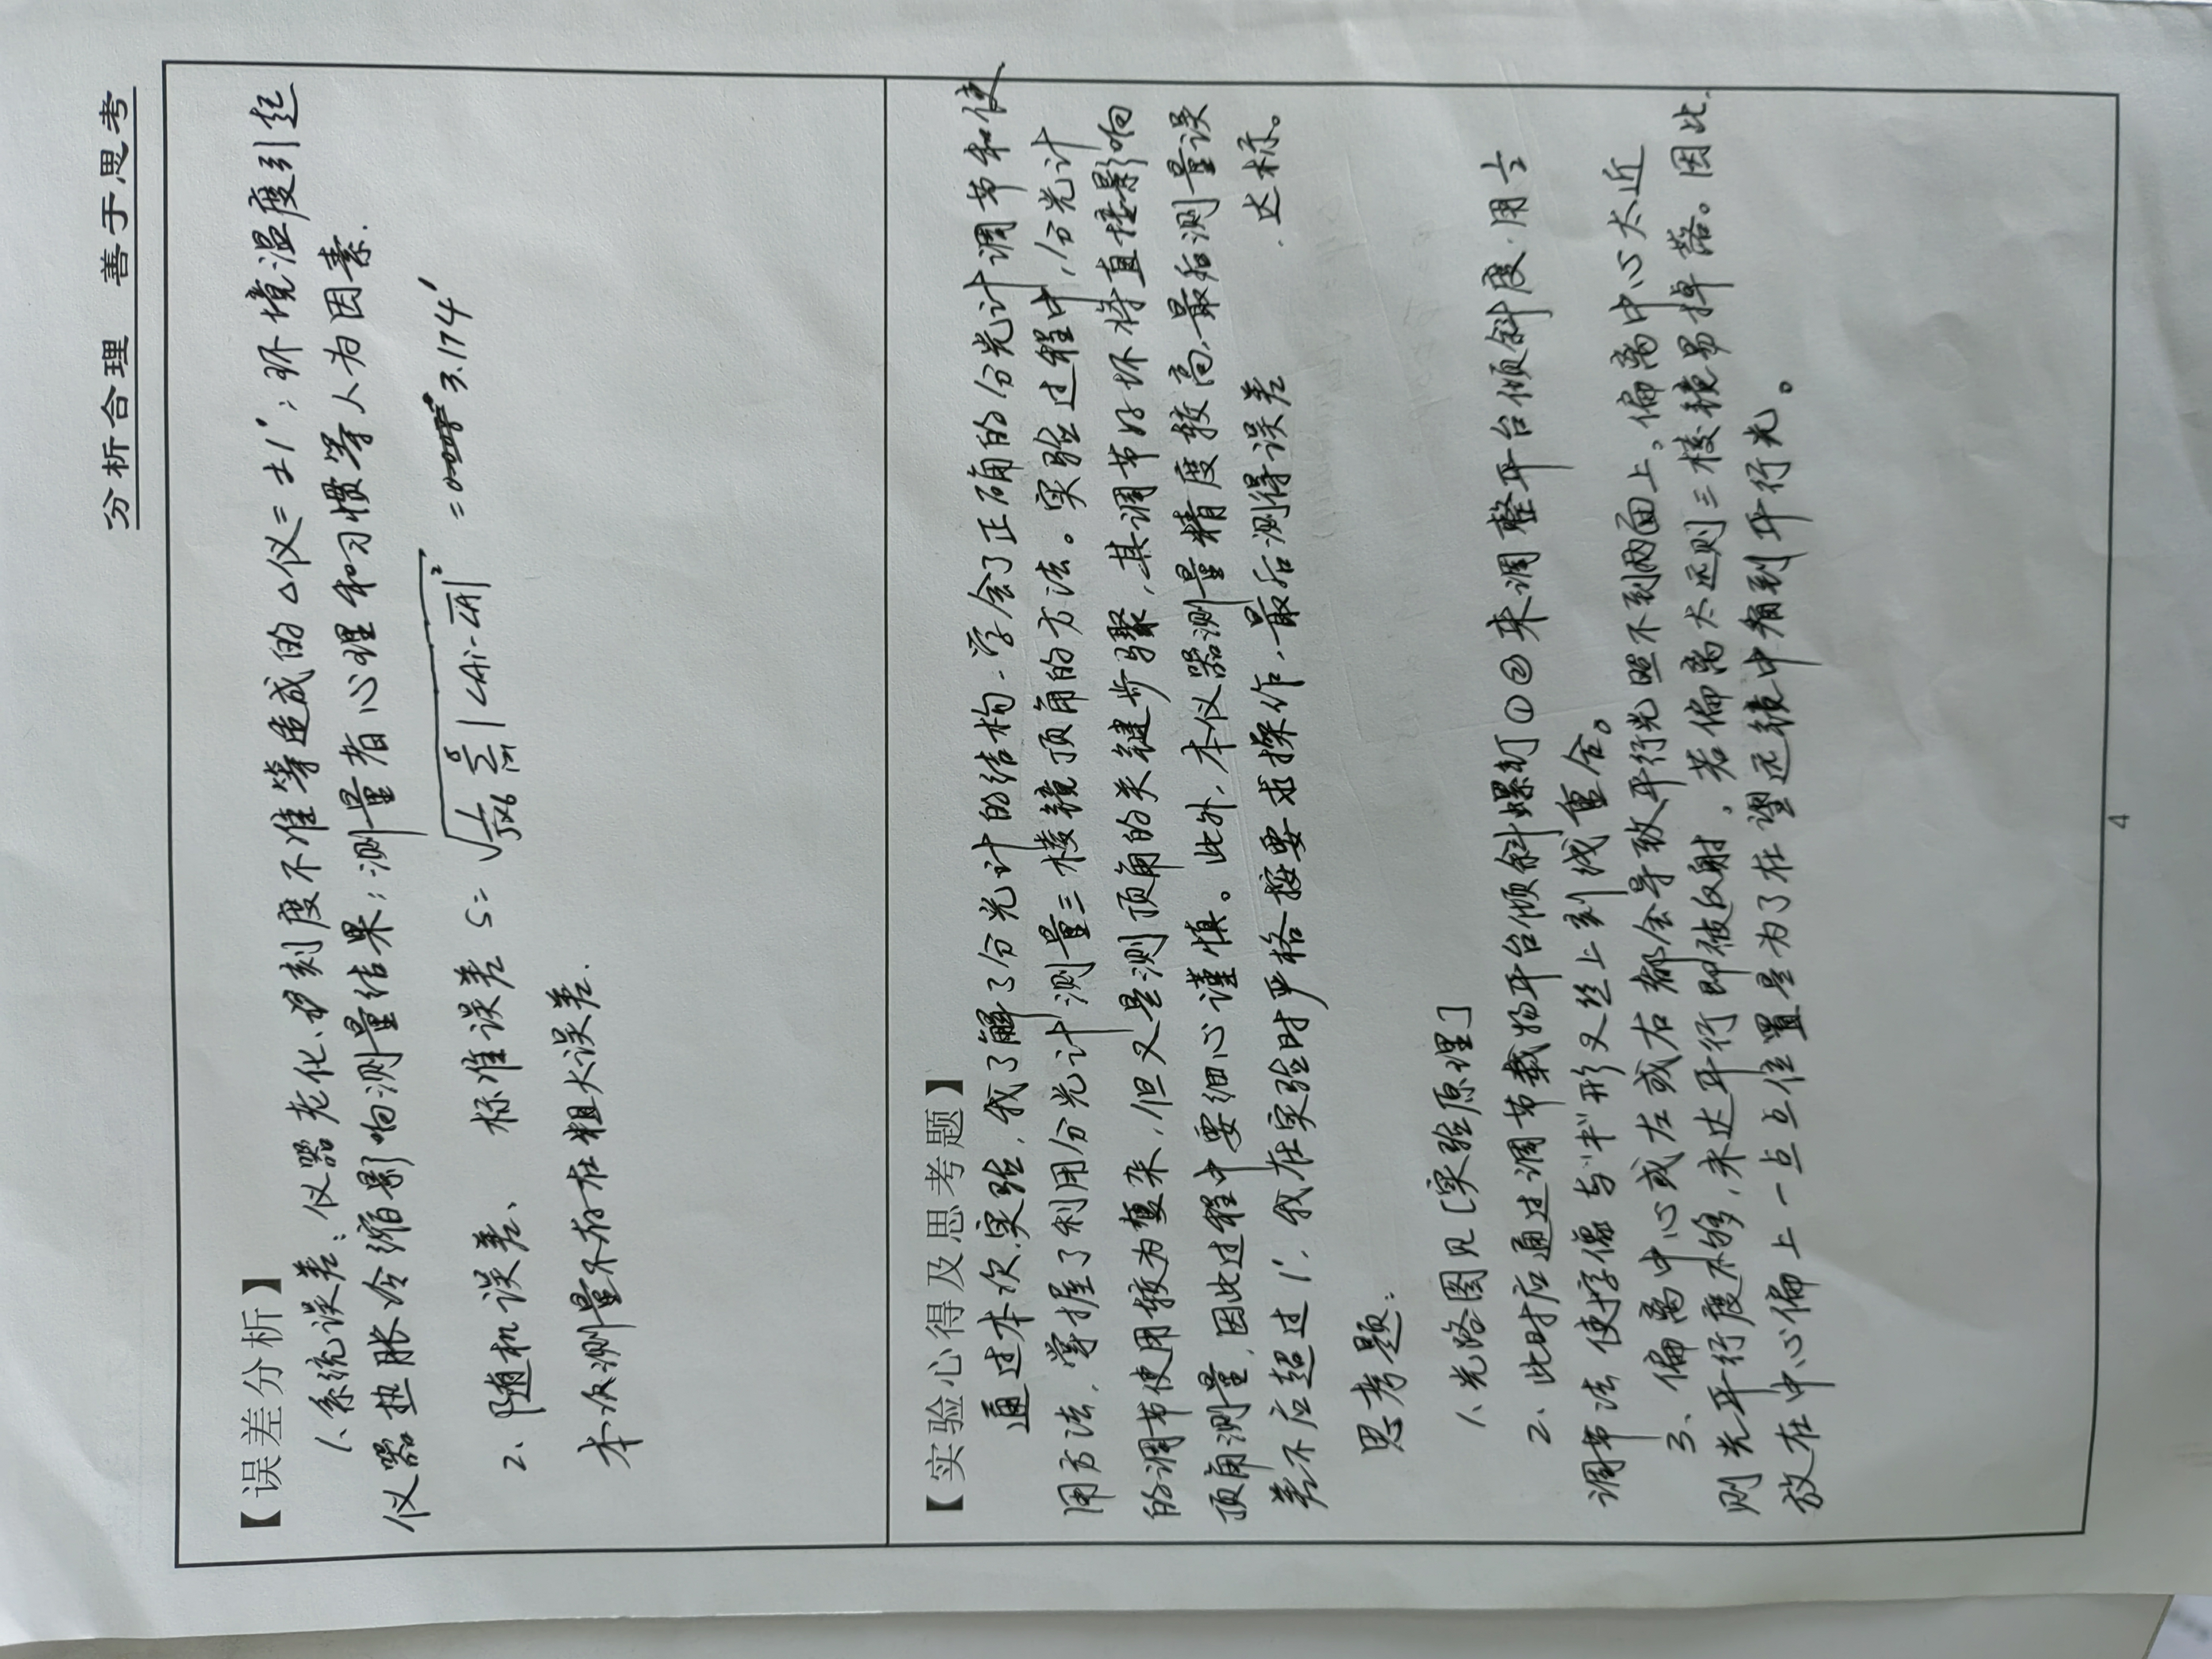 分析合理 善于思考
【误差分析】
1、系统误差：仪器老化、刻度不准等造成的△仪=±1′；环境温度引起
仪器热胀冷缩影响测量结果；测量者心理和习惯等人为因素.
2、随机误差、 标准误差 S= √(1/(5×6) Σ_{i=1}^{6} |∠Ai-\overline{∠A}|²) = 3.174′
本次测量不存在粗大误差.
【实验心得及思考题】
通过本次实验，我了解了分光计的结构，学会了正确的分光计调节和使
用方法，掌握了利用分光计测量三棱镜顶角的方法。实验过程中，分光计
的调节使用较为复杂，但又是测顶角的关键步骤，其调节好坏将直接影响
顶角测量，因此过程中要细心谨慎。此外，本仪器测量精度较高，最后测量误
差不应超过1′，我在实验时严格按要求操作，最后测得误差 达标。
思考题：
1、光路图见[实验原理]
2、此时应通过调节载物平台倾斜螺钉①②来调整平台倾斜度，用½
调节法 使十字像与"丰"形叉丝上刻线重合。
3、偏离中心或左或右都会导致平行光照不到两面上。偏离中心太近
则光平行度不够，未达平行即被反射，若偏离太远则三棱镜易掉落。因此，
放在中心偏上一点点位置是为了在望远镜中看到平行光。
4